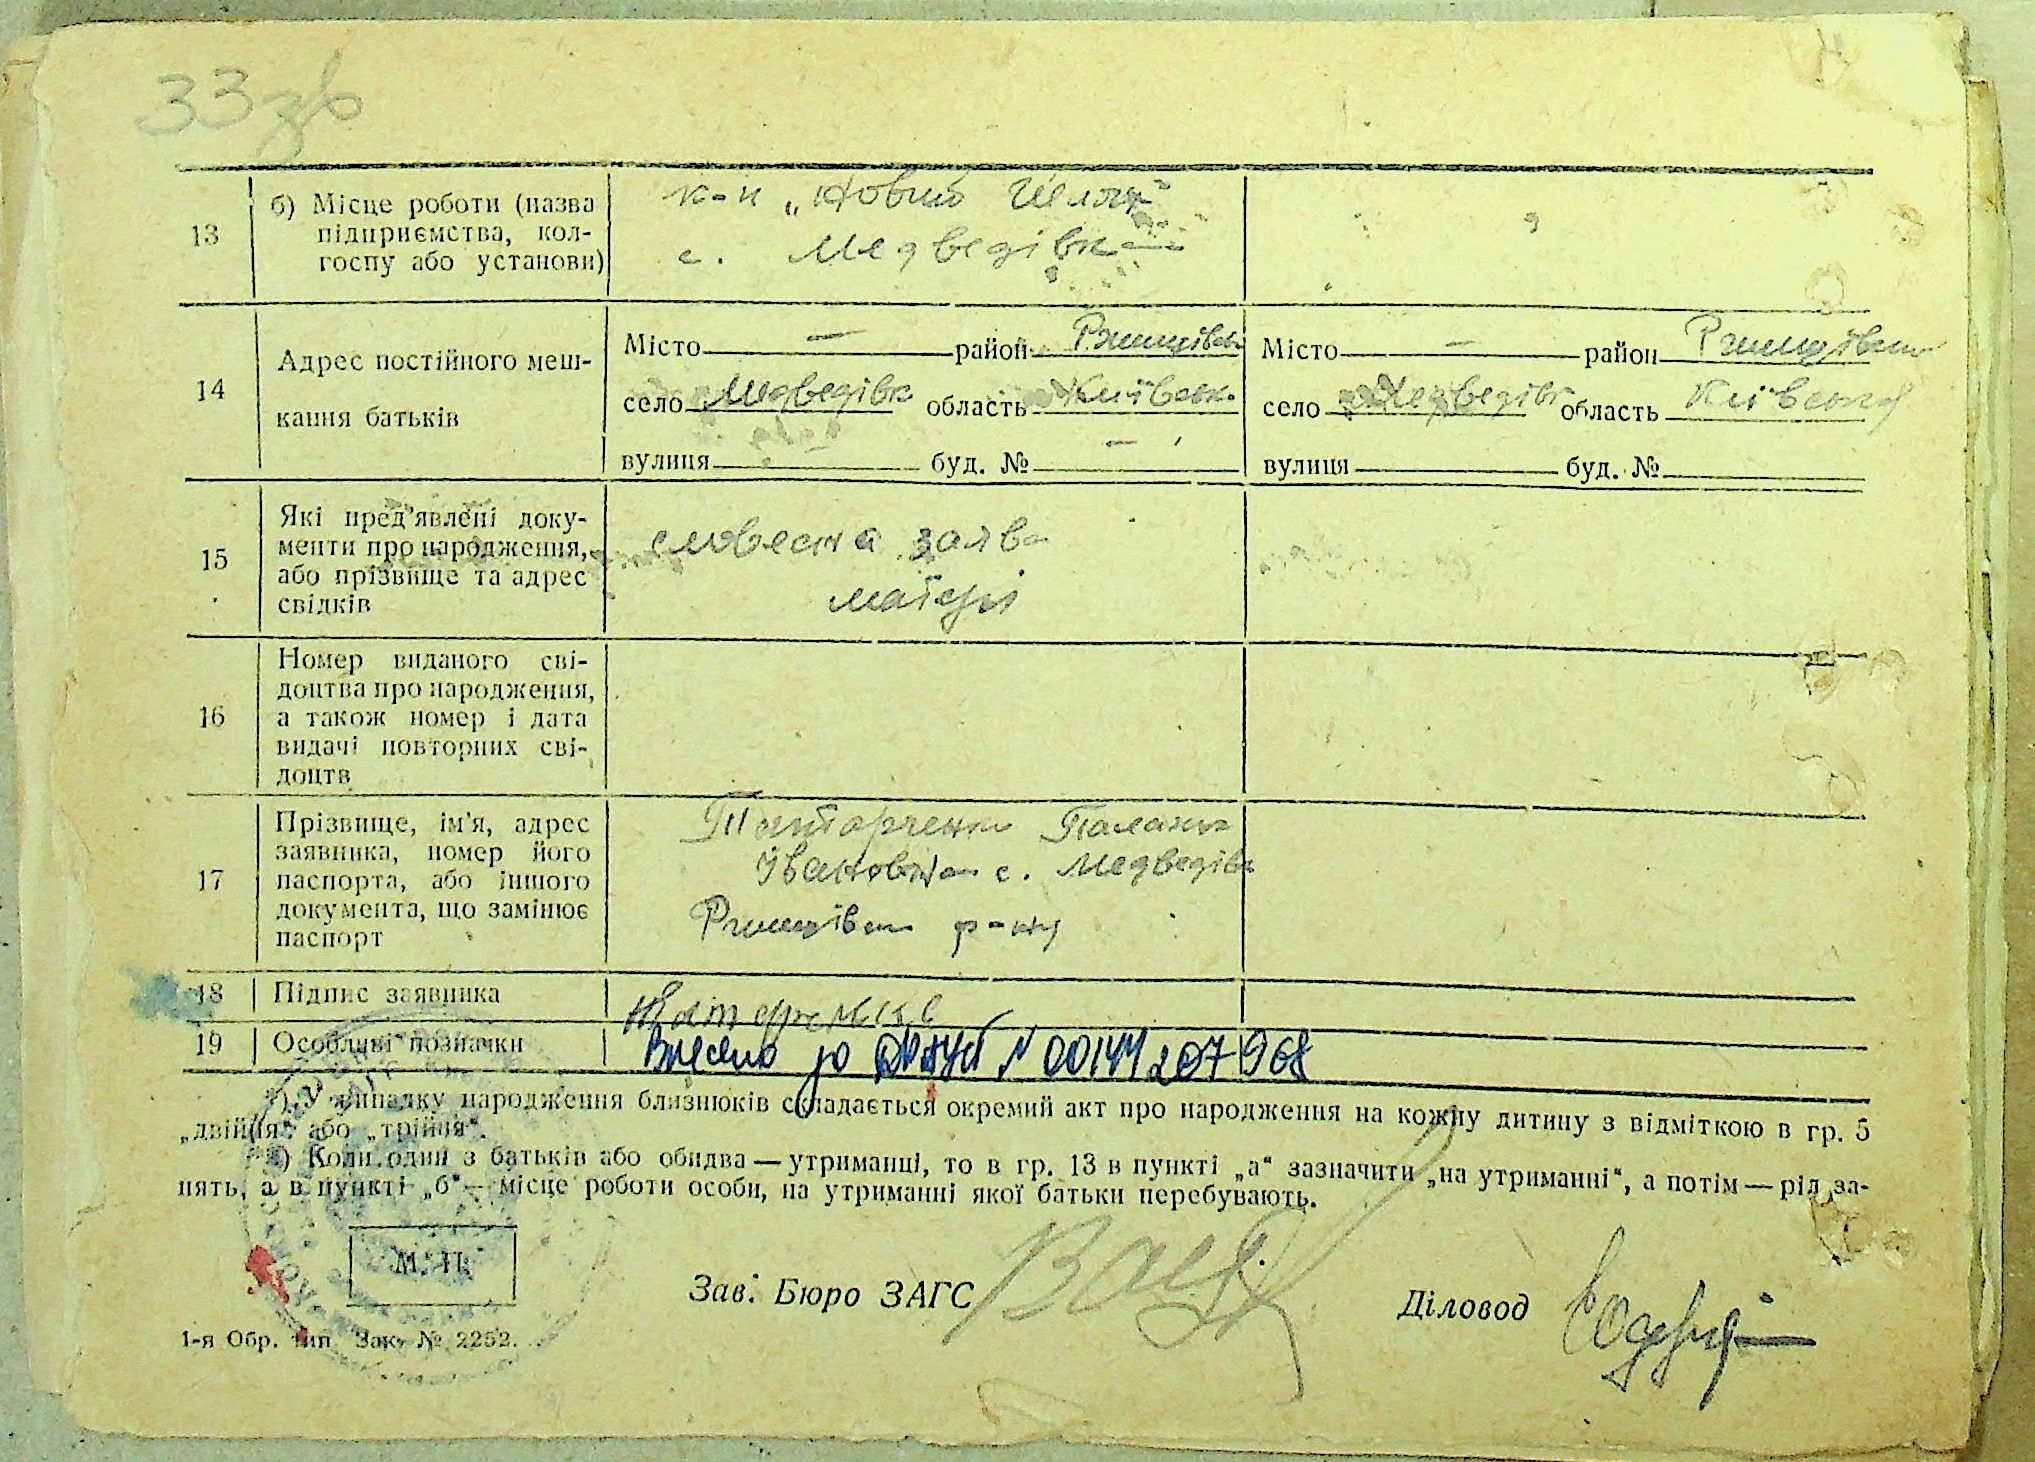 33зв
13
б) Місце роботи (назва
підприємства, кол-
госпу або установи)
к-п „Новий Шлях“
с. Медведівка
"
14
Адрес постійного меш-
кання батьків
Місто — район Ржищівськ
село Медведівк область Київськ.
вулиця буд. № —
Місто — район Ржищівськ
село Медведівк область Київська
вулиця буд. №
15
Які пред’явлені доку-
менти про народження,
або прізвище та адрес
свідків
словесна заява
матері
16
Номер виданого сві-
доцтва про народження,
а також номер і дата
видачі повторних сві-
доцтв
17
Прізвище, ім’я, адрес
заявника, номер його
паспорта, або іншого
документа, що замінює
паспорт
Татарченко Палажка
Івановна с. Медведівк
Ржищівськ р-ну
18
Підпис заявника
19
Особливі позначки
Внесено до ДРАЦС N 00144207968
*) У випадку народження близнюків складається окремий акт про народження на кожну дитину з відміткою в гр. 5
„двійня“ або „трійня“.
*) Коли один з батьків або обидва — утриманці, то в гр. 13 в пункті „а“ зазначити „на утриманні“, а потім — рід за-
нять, а в пункті „б“ — місце роботи особи, на утриманні якої батьки перебувають.
М. П.
Зав. Бюро ЗАГС
Діловод
1-я Обр. тип. Зак. № 2252.